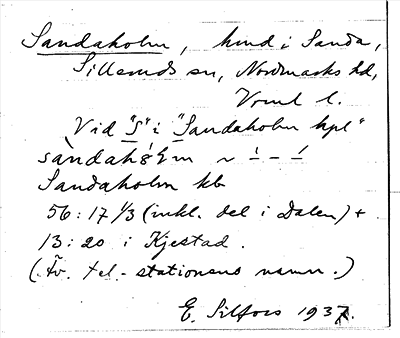 Sandaholm, hmd i Sanda,
Silleruds sn, Nordmarks hd,
Vrml l.
Vid "S" i "Sandaholm hpl"
Sandaholm kb
56:17 1/3 (inkl. del i Dalen) +
13:20 i Kjestad.
(Äv. tel.-stationens namn.)
E. Silfors 1937.